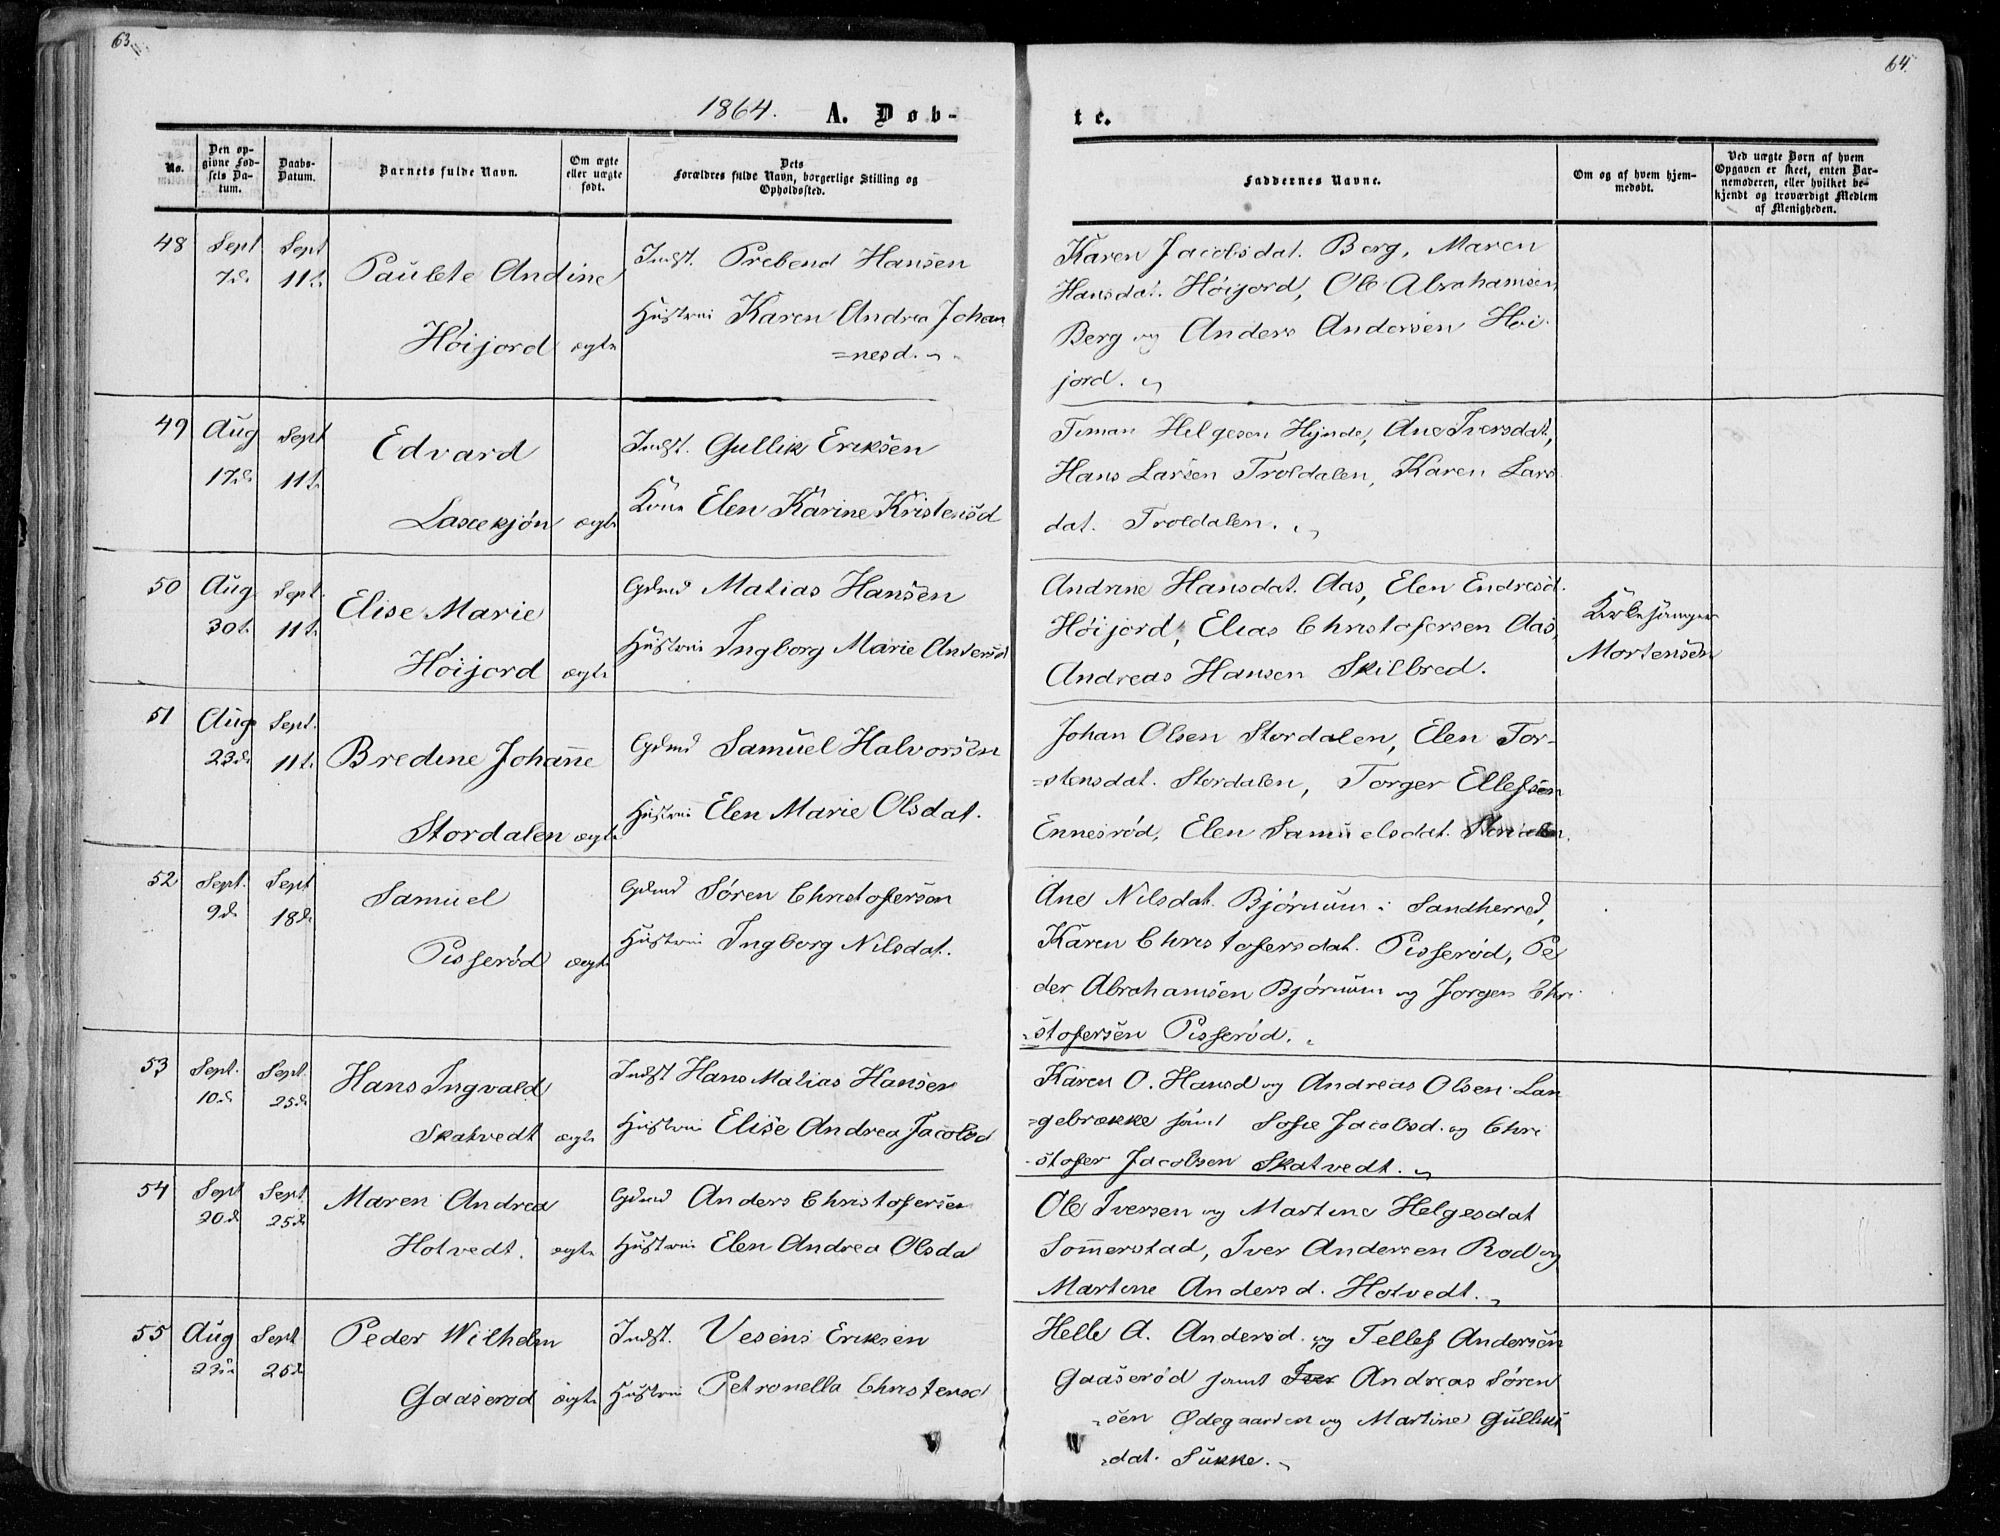 63.
64.
1864. A. Døb-
te.
No.
Den op-
givne Fød-
sels Da-
tum.
Daabs-
Datum.
Barnets fulde Navn.
Om ægte
eller uægte
født.
Dets
Forældres fulde Navn, borgerlige Stilling og
Opholdssted.
Faddernes Navne.
Om og af hvem hjem-
medøbt.
Ved uægte Børn af hvem
Opgaven er skeet, enten Bar-
nemoderen, eller hvilket be-
kjendt og troværdigt Medlem
af Menigheden.
48 Sept. Sept
7d 11t
Paulete Andine
Høijord ægte
Indst. Prebend Hansen
Hustrui Karen Andrea Johan
=nesd.
Karen Jacobsdat. Berg, Maren
Hansdat. Høijord, Ole Abrahamsen
Berg og Anders Andersen Høi-
jord.
49 Aug Sept
17d 11t
Edvard
ægte
Indst. Gullik Eriksen
Kone Elen Karine Kristensd
Timan Helgesen Hynde, Ane Iversdat,
Hans Larsen Troldalen, Karen Lars
dat. Troldalen.
50 Aug. Sept.
30t 11t
Elise Marie
Høijord ægte
Gdmd Matias Hansen
Hustrui Ingborg Marie Andersd
Andrine Hansdat. Aas, Elen Endresd.
Høijord, Elias Christofersen Aas,
Andreas Hansen Skilbred.
Kirkesanger
Mortensen
51 Aug. Sept.
23d 11t
Bredine Johanne
Stordalen ægte
Gdmd Samuel Halvorsen
Hustrui Elen Marie Olsdat.
Johan Olsen Stordalen, Elen Tor-
=stensdat. Stordalen, Torger Ellefsen
Ennesrød, Elen Samuelsdat. Stordalen.
52 Sept. Sept
9d 18d
Samuel
Pisserød ægte
Gdmd Søren Christofersen
Hustrui Ingborg Nilsdat.
Ane Nilsdat. Bjørnum i Sandherred,
Karen Christofersdat. Pisserød, Pe
der Abrahamsen Bjørnum og Jorgen Chri
=stofersen Pisserød.
53 Sept. Sept.
10d 25d
Hans Ingvald
Skatvedt ægte
Indst Hans Matias Hansen
Hustrui Elise Andrea Jacobsd
Karen O. Hansd og Andreas Olsen Lan
=gebrække samt Sofie Jacobsd. og Chri
-stofer Jacobsen Skatvedt.
54 Sept Sept.
20d 25d
Maren Andrea
Hotvedt. ægte
Gdmd Anders Christofersen
Hustrui Elen Andrea Olsda
Ole Iversen og Martine Helgesdat
Sommerstad, Iver Andersen Rød og
Martine Andersd. Hotvedt.
55 Aug Sept
25d
Peder Wilhelm
Gaaserød ægte
Indst. Eriksen
Hustrui Petronella Christensd
Helle A. Andersd. og Tellef Andersen
Gaaserød samt Iver Andreas Søren
=sen Ødegaarden og Martine Gulliks
=dat. Sukke.